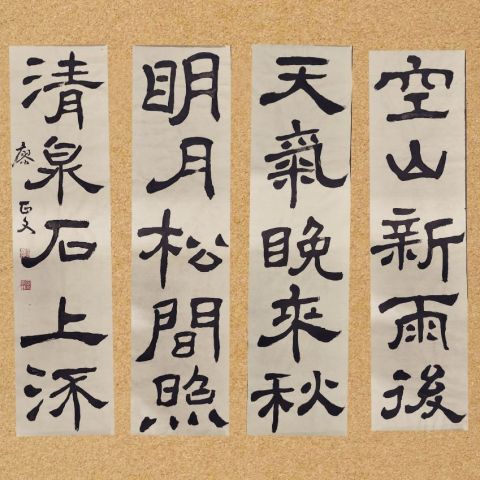 空山新雨後
天氣晚來秋
明月松間照
清泉石上流
廖正文